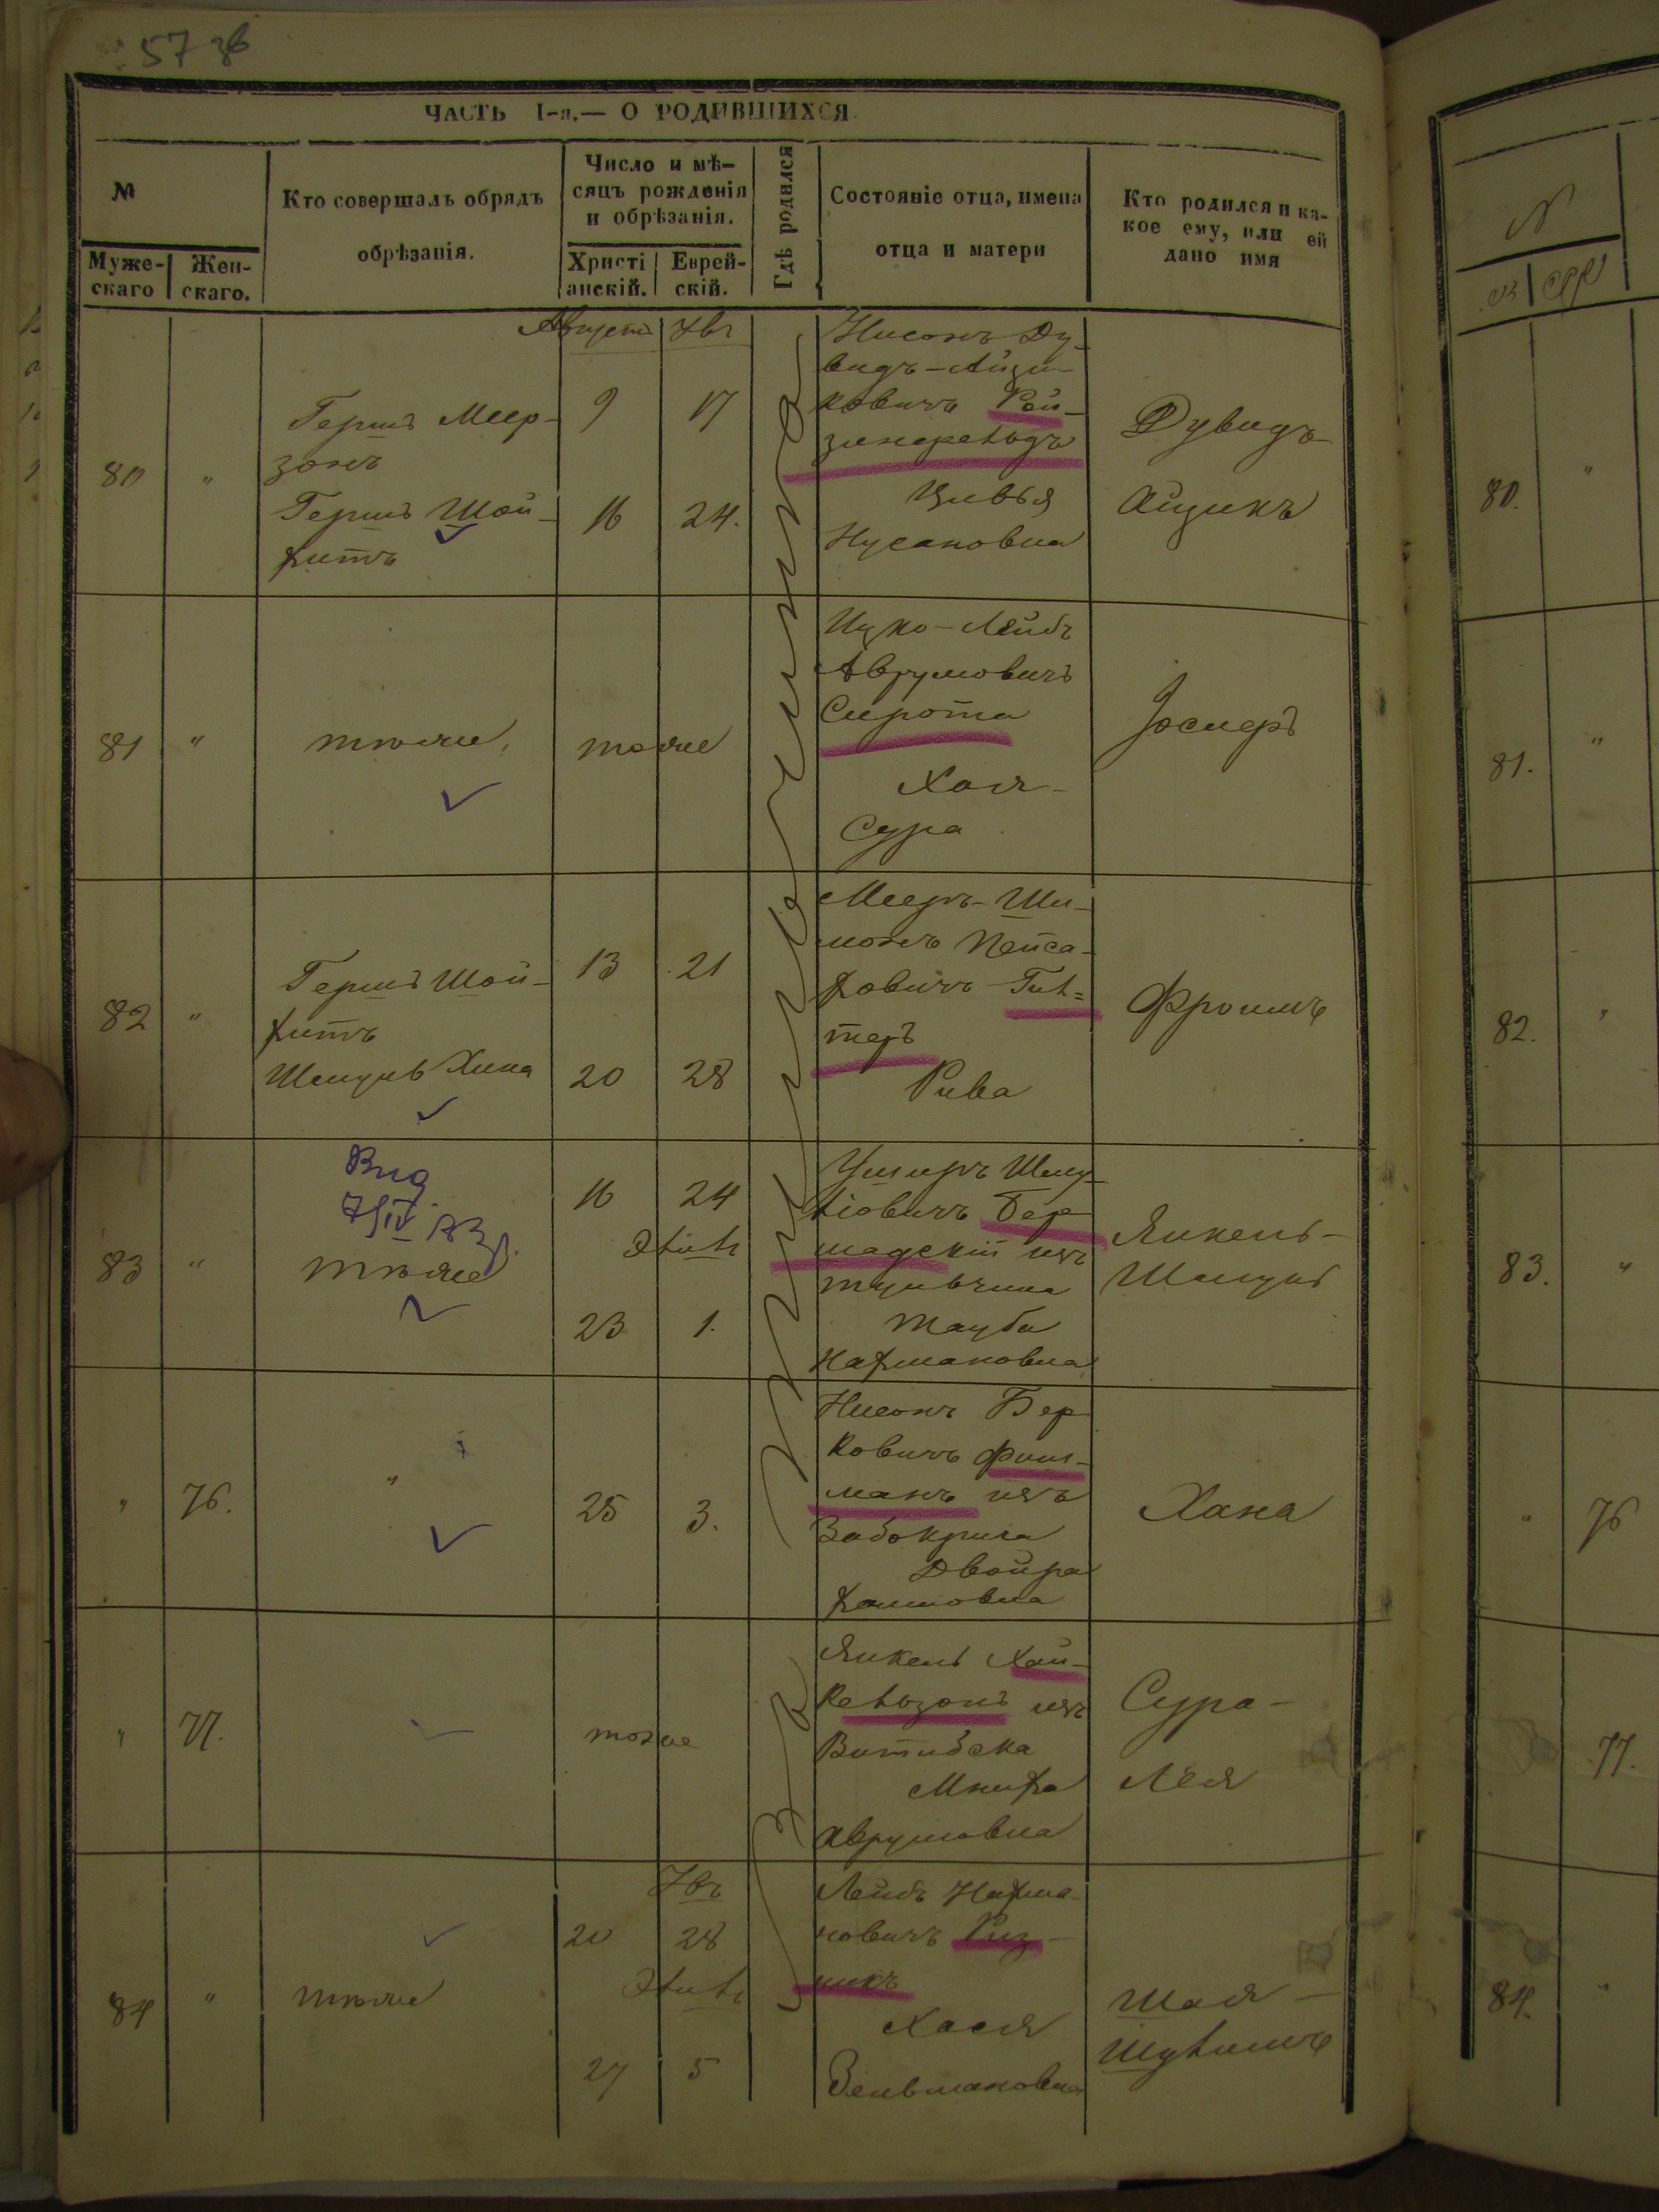 57 зв
ЧАСТЬ I-я.— О РОДИВШИХСЯ.
№
Мужескаго
Женскаго.
Кто совершалъ обрядъ
обрѣзанія.
Число и мѣ-
сяцъ рожденія
и обрѣзанія.
Христі
анскій.
Еврей-
скій.
Гдѣ родился
Состояніе отца, имена
отца и матери
Кто родился и ка-
кое ему, или ей
дано имя
Августъ Авъ
80 "
Гершъ Меер-
зонъ
Гершъ Шой-
хитъ
9 17
16 24.
Нисонъ Ду-
видъ-Айзи-
ковичъ Рой-
Цивья
Нусановна
Дувидъ
Айзикъ
81 "
тѣже
тоже
Ицко-Лейбъ
Аврумовичъ
Сирота
Хая-
Сура
82 "
Гершъ Шой-
хитъ
Шмуль Хина
13 21
20 28
Мееръ-Ши-
монъ Пейса-
ховичъ Гит-
теръ
Рива
Фроимъ
83 "
Вид
тѣже
16 24
Элулъ
23 1.
Ушеръ Шму-
ліовичъ Бер
шадскій изъ
Тульчина
Тауба
Нахмановна
Янкель-
Шмуль
" 76.
"
25 3.
Нисонъ Бер
ковичъ Фиш-
манъ изъ
Двойра
Хана
" 77.
тоже
Янкель Хай-
изъ
Витебска
Аврумовна
Сура-
Лея
Авъ
84 "
тѣже
20 28
Элулъ
27 5
Лейбъ Нахма-
новичъ Риз-
никъ
Хася
Зельмановна
Шая-
Шулимъ
№
80. "
81. "
82. "
83. "
" 76
77.
84. "